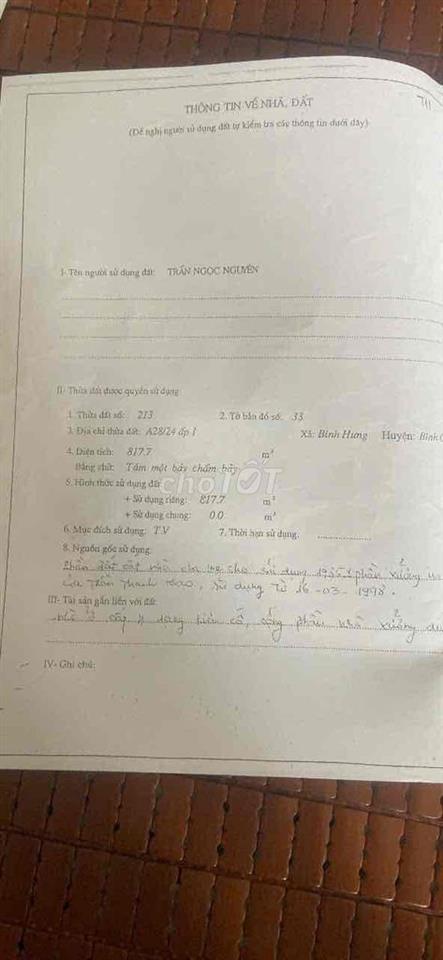 THÔNG TIN VỀ NHÀ, ĐẤT
(Đề nghị người sử dụng đất tự kiểm tra các thông tin dưới đây)
I- Tên người sử dụng đất: TRẦN NGỌC NGUYÊN
II- Thửa đất được quyền sử dụng
1. Thửa đất số: 213 2. Tờ bản đồ số: 33
3. Địa chỉ thửa đất: A28/24 ấp 1 Xã: Bình Hưng Huyện: Bình
4. Diện tích: 817.7 m²
Bằng chữ: Tám một bảy chấm bảy
choTỐT
5. Hình thức sử dụng đất
+ Sử dụng riêng: 817.7 m²
+ Sử dụng chung: 0.0 m²
6. Mục đích sử dụng: T.V 7. Thời hạn sử dụng:
8. Nguồn gốc sử dụng:
Phần đất cất nhà cha mẹ cho sử dụng phần xưởng
của Trần Thanh sử dụng từ 16-03-1998.
III- Tài sản gắn liền với đất:
nhà ở cấp 4 phần nhà xưởng
IV- Ghi chú: